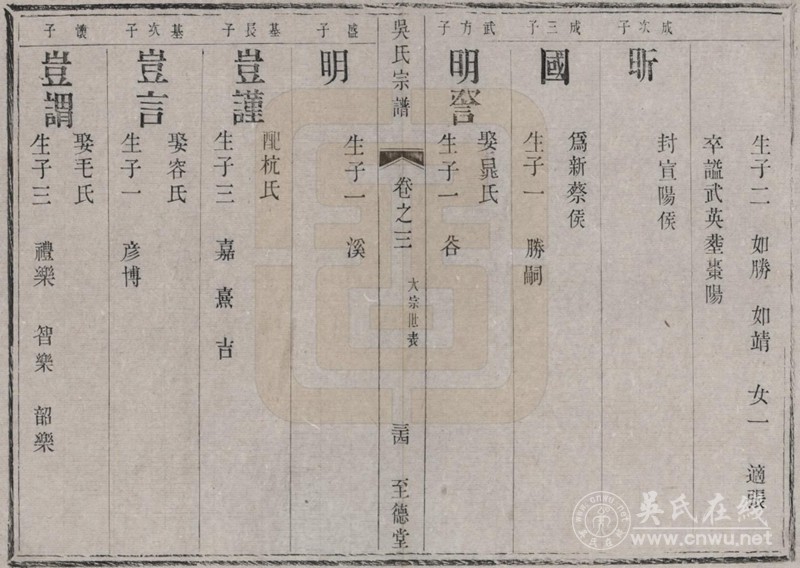 生子二 如勝 如靖 女一 適張
卒謚武英塟棗陽
成次子
昕
封宣陽侯
成三子
國
爲新蔡侯
生子一 勝嗣
武方子
明詧
娶晁氏
生子一 谷
吳氏宗譜
卷之三
大宗世表
至德堂
盛子
明
生子一 溪
基長子
豈謹
配杭氏
生子三 嘉 熹 吉
基次子
豈言
娶容氏
生子一 彦博
懷子
豈謂
娶毛氏
生子三 禮樂 智樂 韶樂
吳氏在线
www.cnwu.net